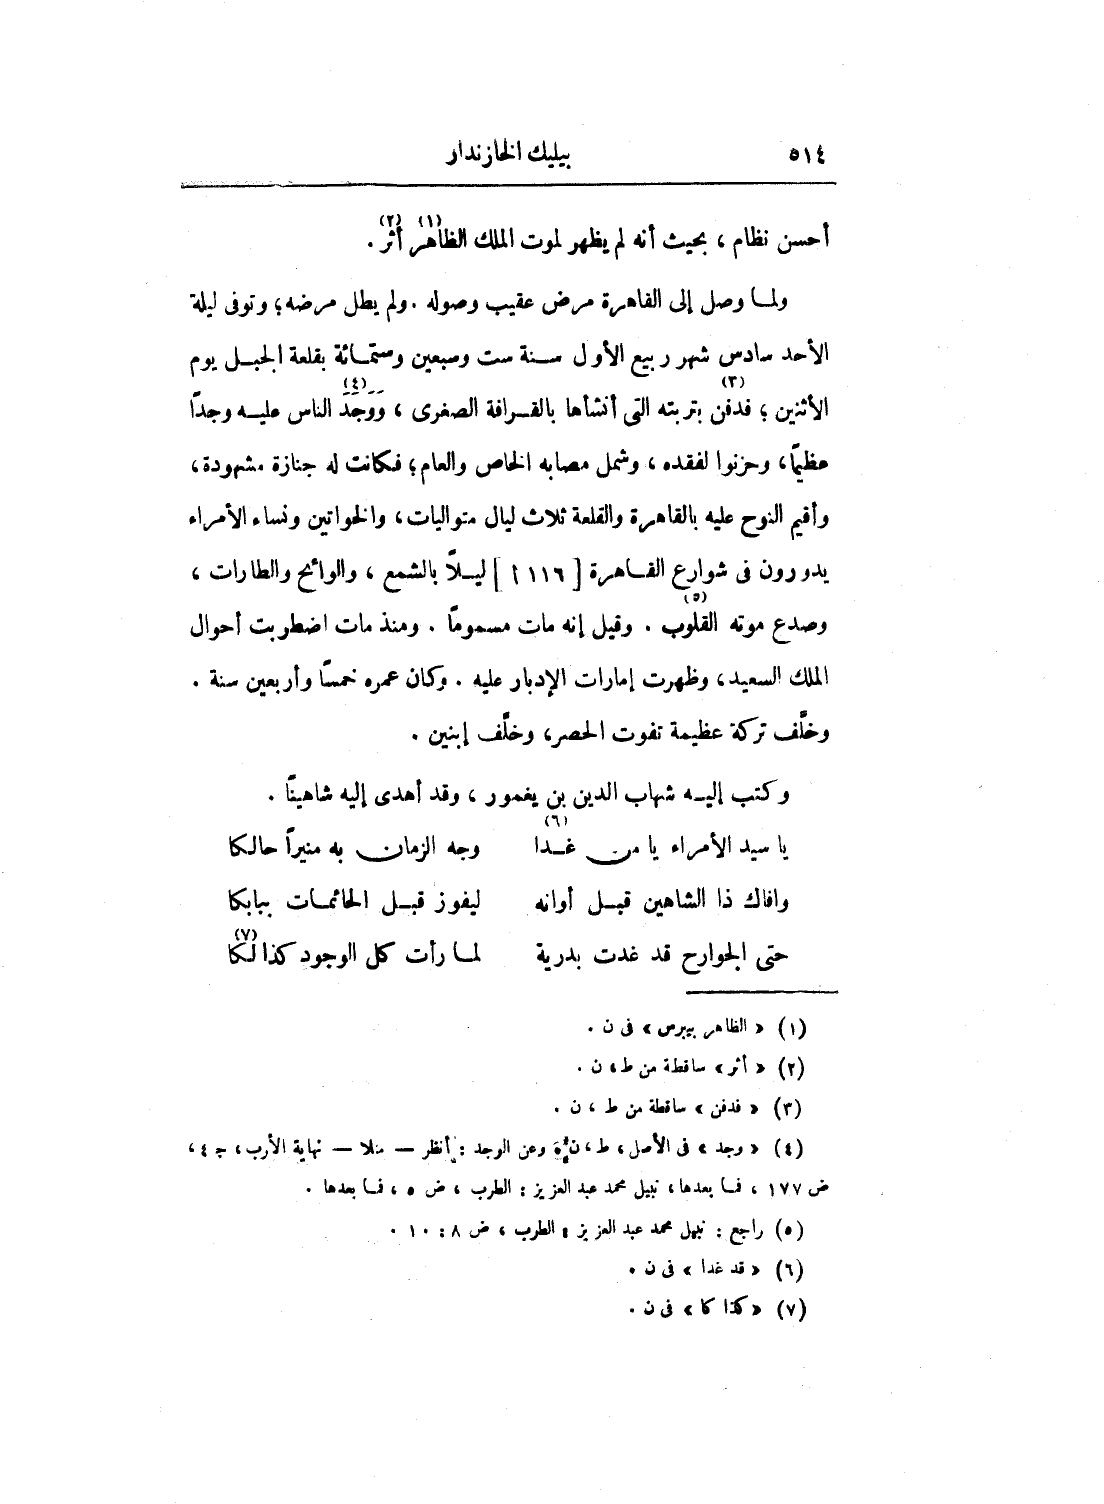 ٥١٤ بيليك الخازندار
أحسن نظام ، بحيث أنه لم يظهر لموت الملك الظاهر (١) أثر (٢) .
ولمـا وصل إلى القاهرة مرض عقيب وصوله . ولم يطل مرضه ؛ وتوفى ليلة
الأحد سادس شهر ربيع الأول سـنة ست وسبعين وستمـائة بقلعة الجبـل يوم
الأثنين ؛ فدفن (٣) بتربته التى أنشأها بالقـرافة الصغرى ، وَوَجَدَ (٤) الناس عليـه وجدًا
عظيمًا ، وحزنوا لفقده ، وشمل مصابه الخاص والعام ؛ فكانت له جنازة مشهودة ،
وأقيم النوح عليه بالقاهرة والقلعة ثلاث ليال متواليات ، والخواتين ونساء الأمراء
يدورون فى شوارع القـاهرة [ ١١٦ أ ] ليـلاً بالشمع ، والوائح والطارات ،
وصدع موته القلوب (٥) . وقيل إنه مات مسمومًا . ومنذ مات اضطربت أحوال
الملك السعيد ، وظهرت إمارات الإدبار عليه . وكان عمره خمسًا وأربعين سنة .
وخلَّف تركة عظيمة تفوت الحصر ، وخلَّف إبنين .
وكتب إليـه شهاب الدين بن يغمور ، وقد أهدى إليه شاهينًا .
يا سيد الأمراء يا من غـدا (٦) وجه الزمان به منيراً حالكا
وافاك ذا الشاهين قبـل أوانه ليفوز قبـل الحائمـات ببابكا
حتى الجوارح قد غدت بدرية لمـا رأت كل الوجود كذا لكا (٧)
(١) « الظاهر بيبرس » فى ن .
(٢) « أثر » ساقطة من ط ، ن .
(٣) « فدفن » ساقطة من ط ، ن .
(٤) « وجد » فى الأصل ، ط ، ن، وعن الوجد : أنظر — مثلا — نهاية الأرب ، جـ ٤ ،
ص ١٧٧ ، فمـا بعدها ، نبيل محمد عبد العزيز : الطرب ، ص ٥ ، فمـا بعدها .
(٥) راجع : نبيل محمد عبد العزيز : الطرب ، ص ٨ : ١٠ .
(٦) « قد غدا » فى ن .
(٧) « كذا كا » فى ن .